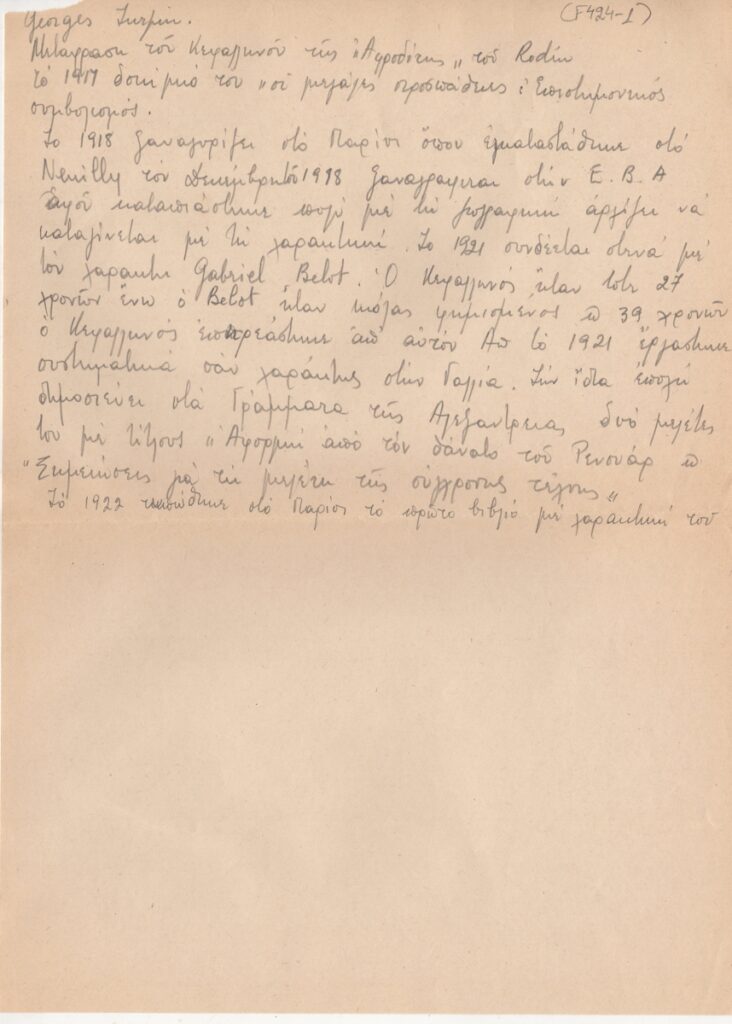 Georges Turpin.
(F424-1)
Μετάφραση τοῦ Κεφαλληνοῦ τῆς "Ἀφροδίτης" τοῦ Rodin
τὸ 1917 δοκίμιό του "οἱ μεγάλες προσπάθειες: Ἐπιστημονικός
συμβολισμός.
Το 1918 ξαναγυρίζει στό Παρίσι ὅπου ἐγκαταστάθηκε στό
Neuilly τον Δεκέμβρη τοῦ 1918 ξαναγράφεται στήν E. B. A
ἀφοῦ καταπιάστηκε πολύ μέ τη ζωγραφική ἀρχίζει νά
καταγίνεται μέ τη χαρακτική. Το 1921 συνδέεται στενά μέ
τόν χαράκτη Gabriel Belot. Ὁ Κεφαλληνός ἦταν τότε 27
χρονῶν ἐνω ὁ Belot ἦταν κιόλας φημισμένος 39 χρονῶν
ὁ Κεφαλληνός ἐπηρεάστηκε ἀπ' αὐτόν Απ τό 1921 ἐργάστηκε
συστηματικά σάν χαράκτης στήν Γαλλία. Τήν ἴδια ἐποχή
δημοσιεύει στά Γράμματα τῆς Αλεξάντρειας δυό μελέτες
του μέ τίτλους "Ἀφορμή ἀπό τόν θάνατο τοῦ Ρενουάρ
"Σημειώσεις γιά τη μελέτη τῆς σύγχρονης τέχνης"
Τό 1922 τυπώθηκε στό Παρίσι τό πρῶτο βιβλίο μέ χαρακτική του